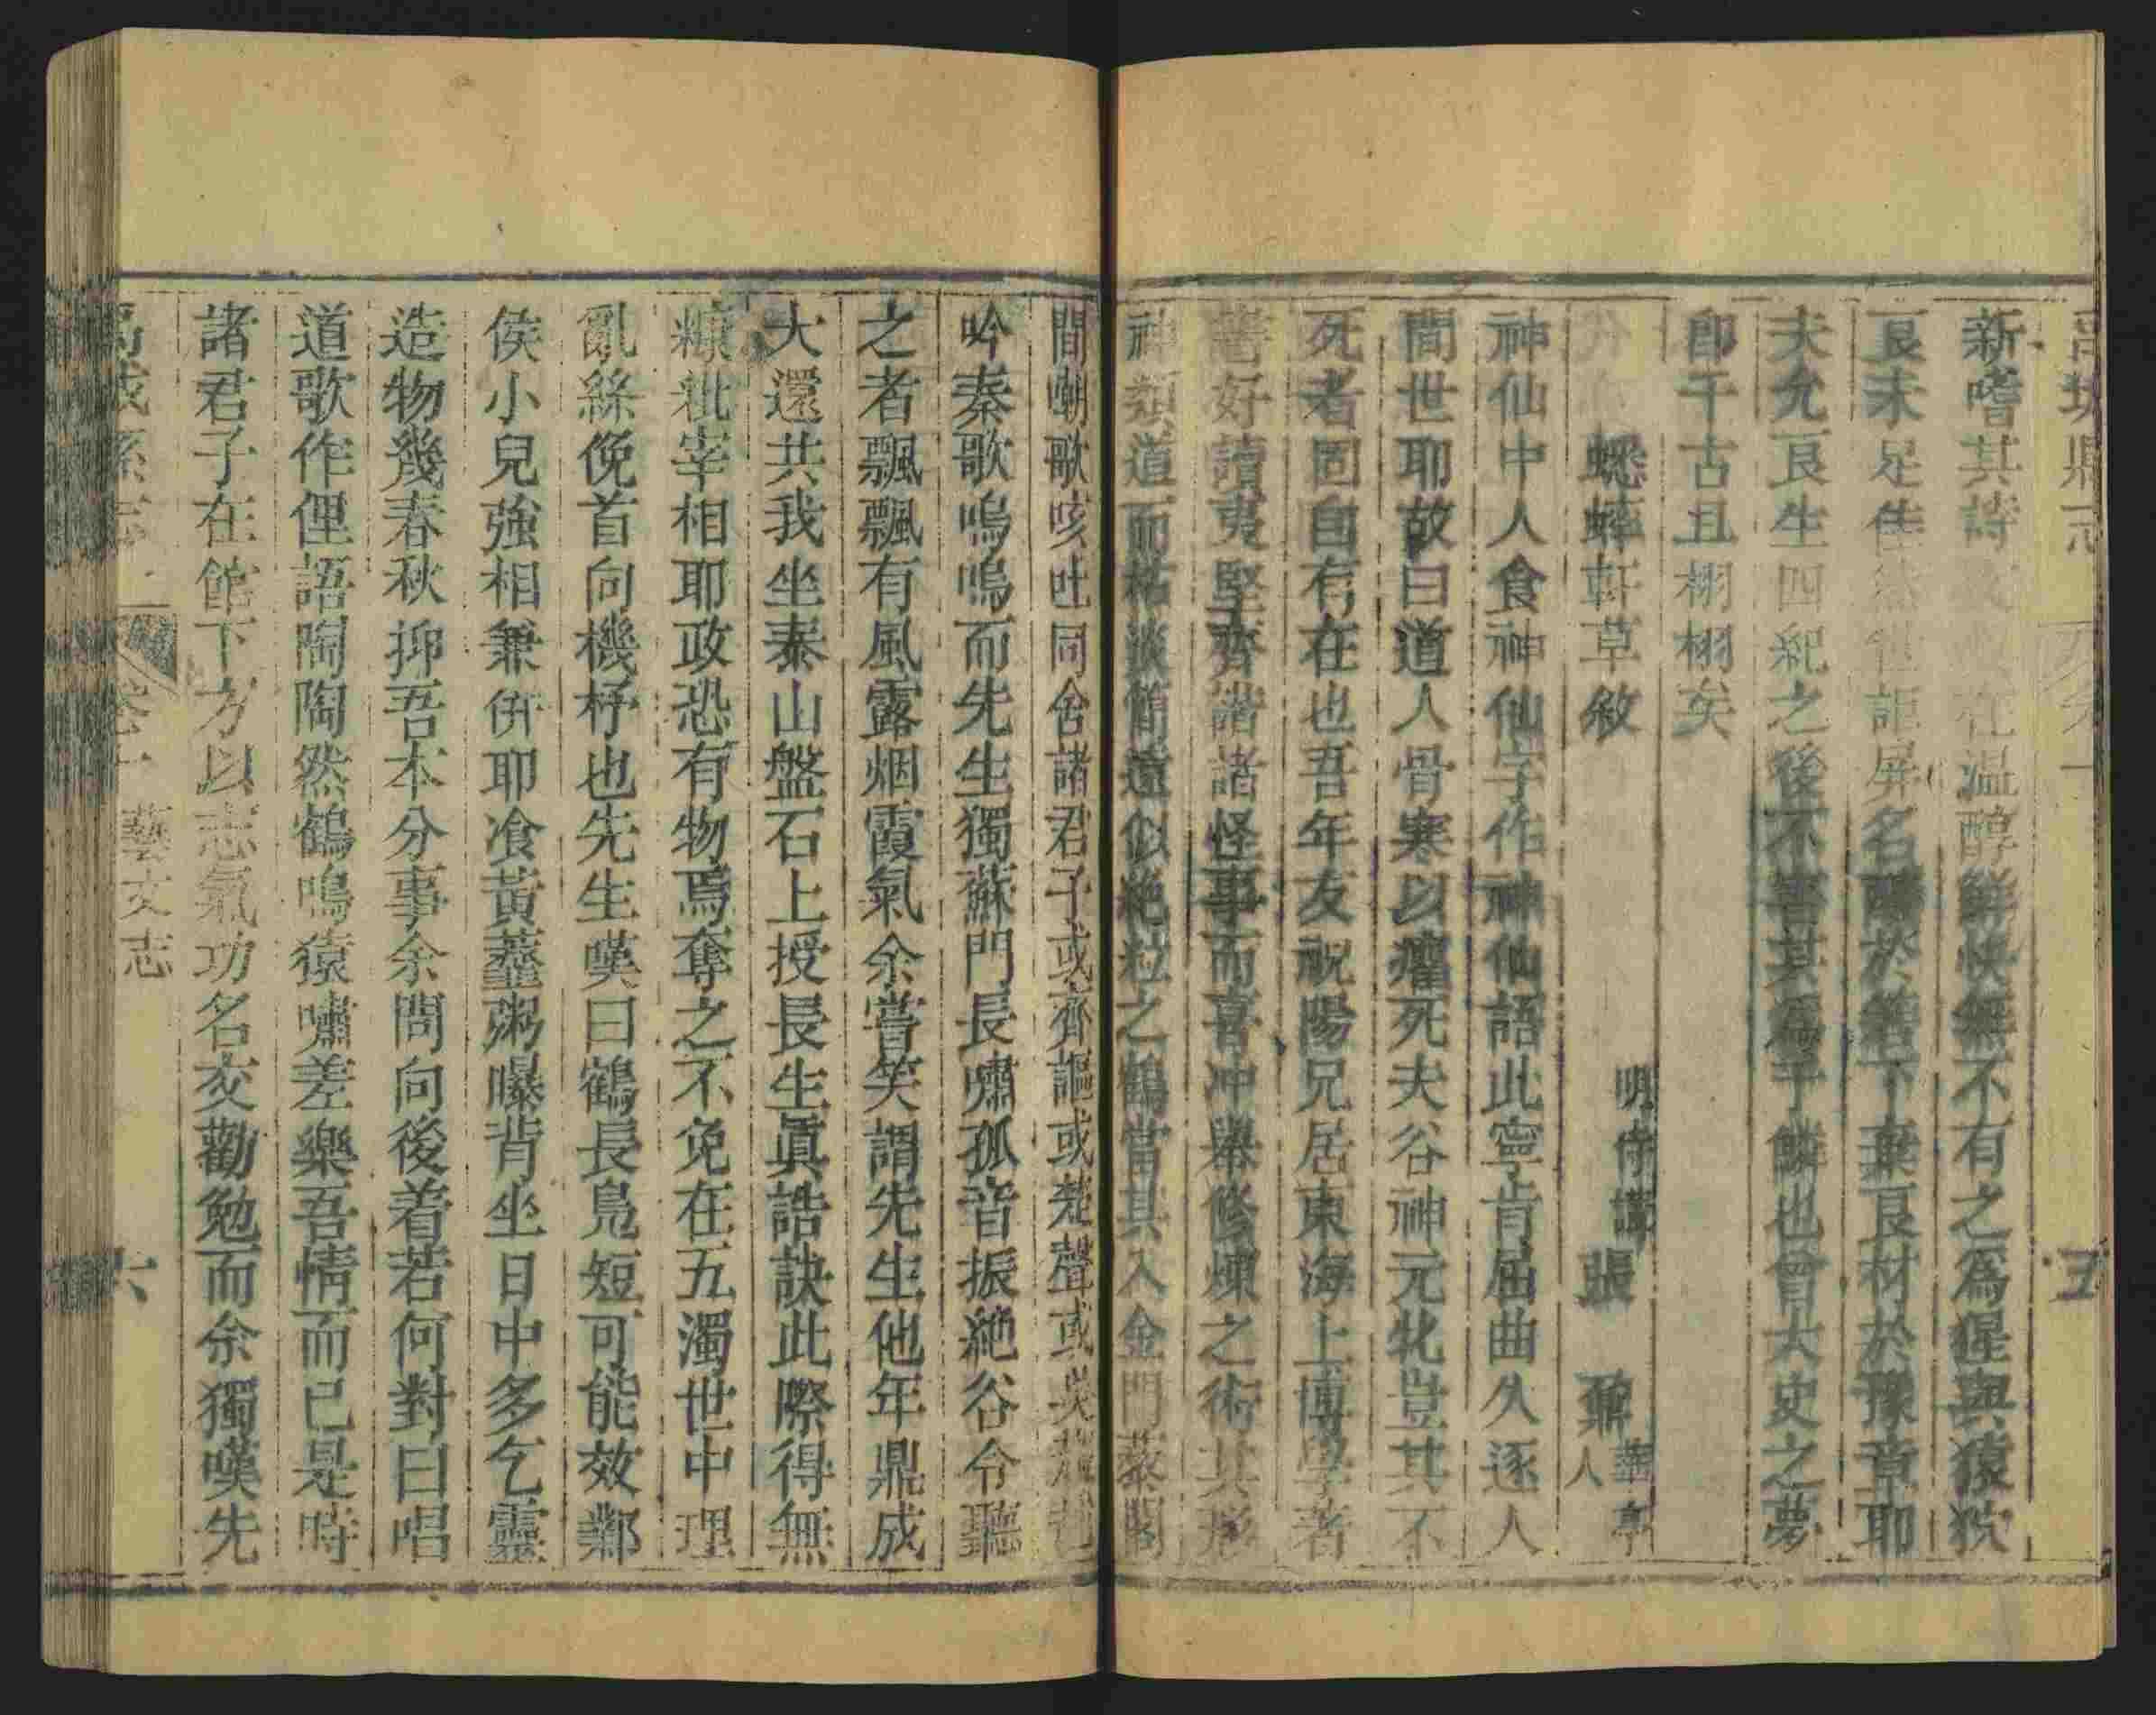 新嗜其詩 在温醇鮮快無不有之爲猩與猿狖
良未足佳 詎屏名 於 下棄良材於豫章耶
夫允良生四紀之後不 其爲于鱗也曾大史之夢
卽千古且栩栩矣
蟋蟀軒草敘
明侍講張鼐華亭人
神仙中人食神仙字作神仙語此寧肯屈曲久逐人
間世耶故曰道人骨寒以癯死夫谷神元牝豈其不
死者固自有在也吾年友祝陽兄居東海上博學著
書好讀夷堅齊諧諸怪事而喜冲舉修煉之術其形
神類道而枯淡簡遠似絶粒之鶴當其入金門蒸閣
間嘲歌咳吐同舍諸君子或齊謳或楚聲或吳
吟秦歌嗚嗚而先生獨蘇門長嘯孤音振絶谷令聽
之者飄飄有風露烟霞氣余嘗笑謂先生他年鼎成
大還共我坐泰山盤石上授長生眞誥訣此際得無
糠粃宰相耶政恐有物焉奪之不免在五濁世中理
亂絲俛首向機杼也先生嘆曰鶴長鳧短可能效鄴
侯小兒強相兼併耶飡黃虀粥曝背坐日中多乞靈
造物幾春秋抑吾本分事余問向後着若何對曰唱
道歌作俚語陶陶然鶴鳴猿嘯差樂吾情而已是時
諸君子在館下方以志氣功名交勸勉而余獨嘆先
卷十 藝文志 六